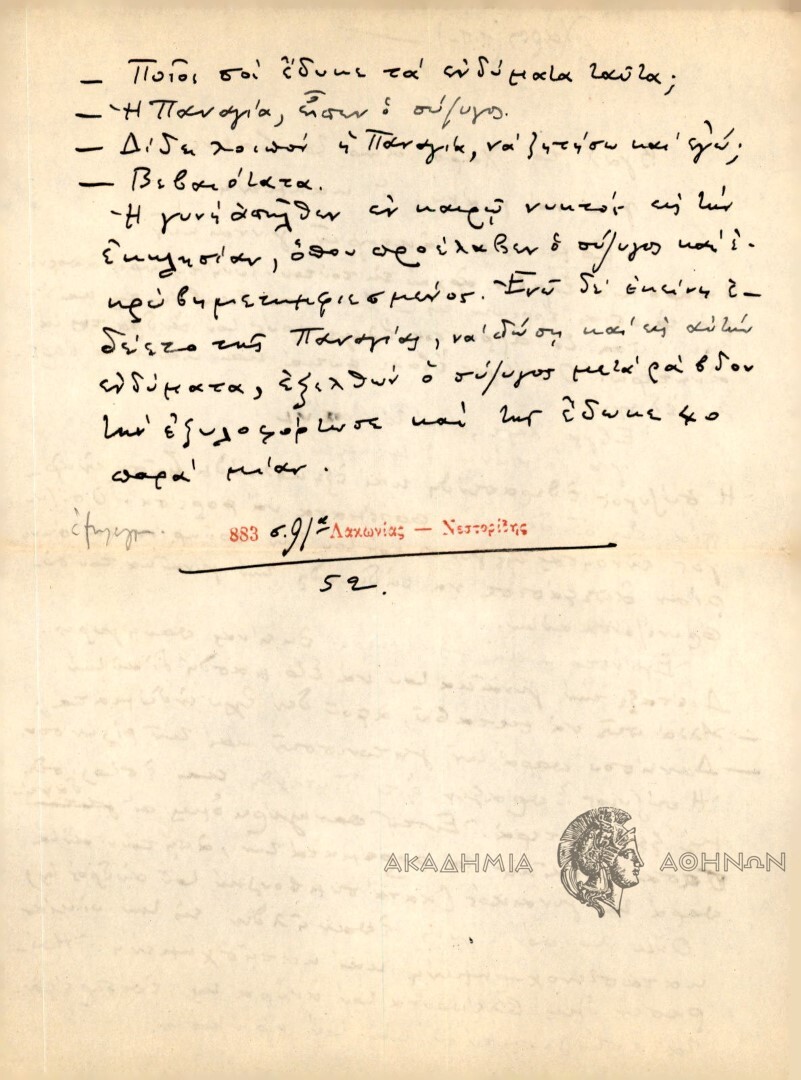 — Ποῖοι σοὶ ἔδωκε τὰ ἐνδύματα ταῦτα;
— Ἡ Παναγία, εἶπεν ὁ σύζυγος.
— Δίδει λοιπὸν ἡ Παναγία, νὰ ζητήσω καὶ ἐγώ;
— Βεβαιότατα.
Ἡ γυνὴ ἀπῆλθεν ἐν καιρῷ νυκτὸς εἰς τὴν
ἐκκλησίαν, ὅπου προέλαβεν ὁ σύζυγος καὶ ἐ-
κρύβη μετημφιεσμένος. Ἐνῷ δὲ ἐκείνη ἐ-
δέετο τῆς Παναγίας, νὰ δώσῃ καὶ εἰς αὐτὴν
ἐνδύματα, ἐξελθὼν ὁ σύζυγος μετὰ ράβδον
τὴν ἐξυλοφόρτωσε καὶ τῆς ἔδωκε 40
παρὰ μίαν.
883 σ. 91 Λακωνίας — Νεστορίδης
52.
ΑΚΑΔΗΜΙΑ ΑΘΗΝΩΝ